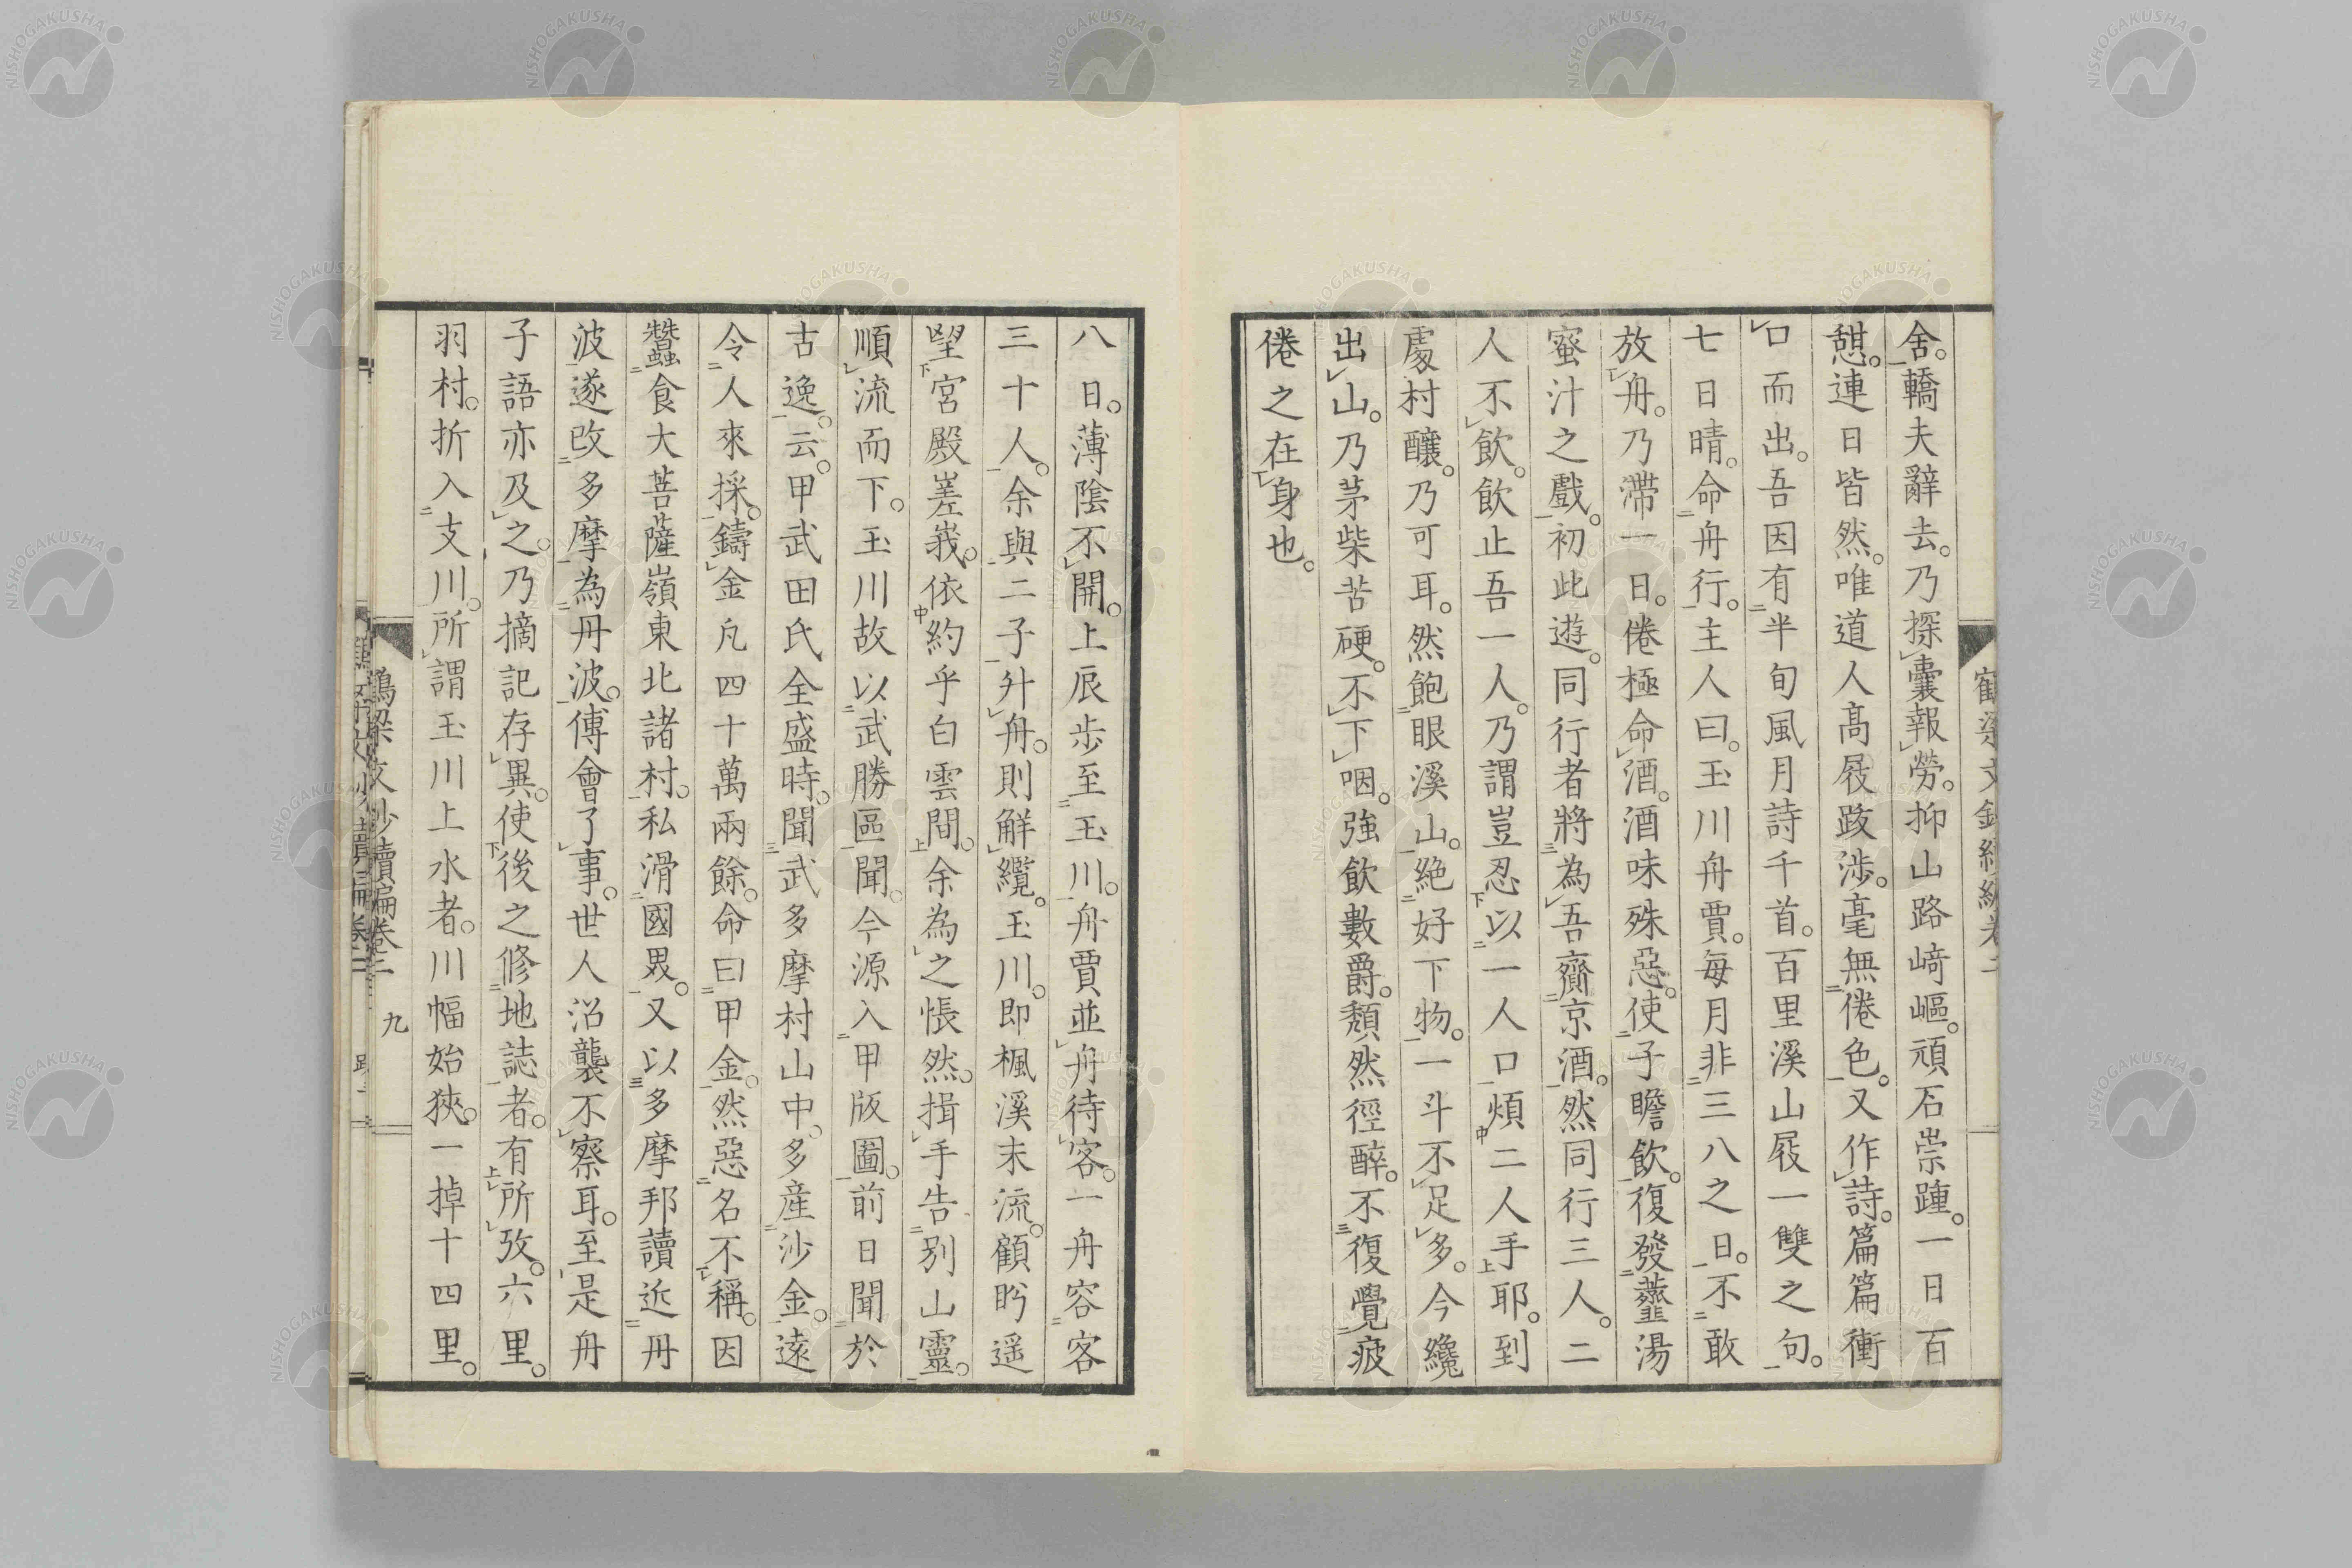 舍。轎夫辭去。乃探囊報勞。抑山路﨑嶇。頑石崇踵。一日百
憇。連日皆然。唯道人髙屐跋涉。毫無倦色。又作詩。篇篇衝
口而出。吾因有半旬風月詩千首。百里溪山屐一雙之句。
七日晴。命舟行。主人曰。玉川舟賈。每月非三八之日。不敢
放舟。乃滯一日。倦極命酒。酒味殊惡。使子瞻飲。復發虀湯
蜜汁之戲。初此遊。同行者將為吾齎京酒。然同行三人。二
人不飲。飲止吾一人。乃謂豈忍以一人口煩二人手耶。到
處村釀。乃可耳。然飽眼溪山。絕好下物。一斗不足多。今纔
出山。乃茅柴苦硬。不下咽。強飲數爵。頹然徑醉。不復覺疲
倦之在身也。
八日。薄陰不開。上辰步至玉川。舟賈並舟待客。一舟容客
三十人。余與二子升舟。則解纜。玉川。即楓溪末流。顧盻遥
望宮殿嵳峩。依約乎白雲間。余為之悵然。揖手告別山靈。
順流而下。玉川故以武勝區聞。今源入甲版圖。前日聞於
古逸。云。甲武田氏全盛時。聞武多摩村山中。多産沙金。遠
令人來採。鑄金凡四十萬兩餘。命曰甲金。然惡名不稱。因
蠶食大菩薩嶺東北諸村。私滑國界。又以多摩邦讀近丹
波遂改多摩為丹波。傅會了事。世人沿襲不察耳。至是舟
子語亦及之。乃摘記存異。使後之修地誌者。有所攷。六里。
羽村。折入支川。所謂玉川上水者。川幅始狹。一掉十四里。
鶴梁文鈔續編卷二
九